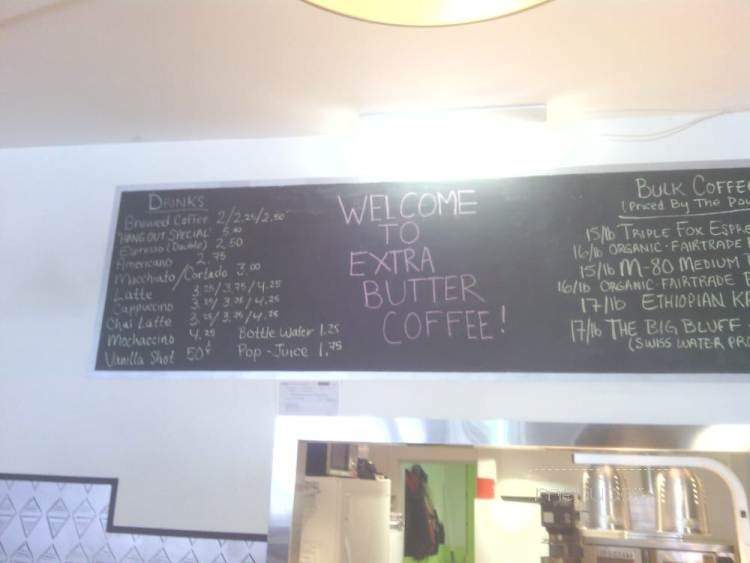 DRINKS
Brewed Coffee 2/2.25/2.50
"HANG OUT SPECIAL" 5.00
Espresso (Double) 2.50
Americano 2.75
Macchiato/Cortado 3.00
Latte 3.25/3.75/4.25
Cappuccino 3.25/3.75/4.25
Chai Latte 3.25/3.75/4.25
Mochaccino 4.25
Vanilla Shot 50¢
Bottle Water 1.25
Pop - Juice 1.75
WELCOME
TO
EXTRA
BUTTER
COFFEE!
BULK COFFEE
(Priced By The
15/lb TRIPLE FOX
16/lb ORGANIC · FAIRTRADE
15/lb M-80 MEDIUM
16/lb ORGANIC · FAIRTRADE
17/lb ETHIOPIAN
17/lb THE BIG BLUFF
(SWISS WATER